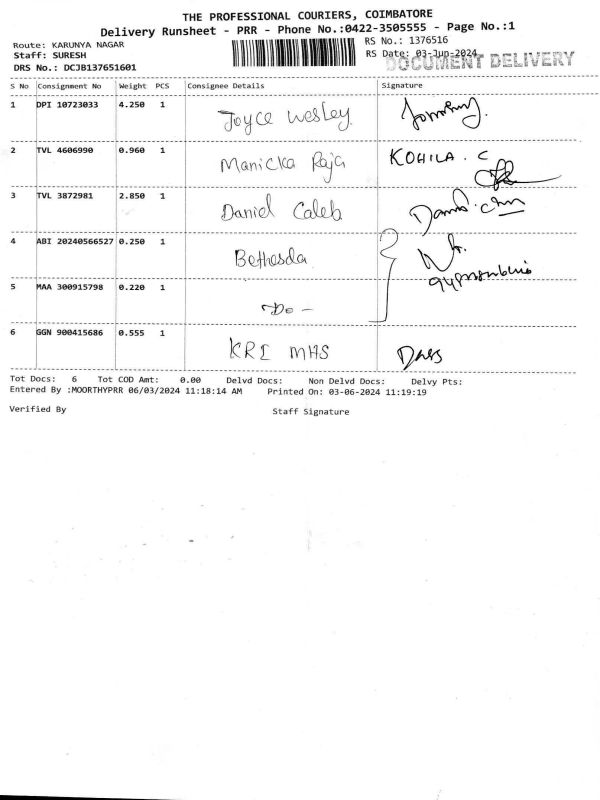 THE PROFESSIONAL COURIERS, COIMBATORE
Delivery Runsheet - PRR - Phone No.:0422-3505555 - Page No.:1
Route: KARUNYA NAGAR RS No.: 1376516
Staff: SURESH RS Date: 03-Jun-2024
DOCUMENT DELIVERY
DRS No.: DCJB137651601
S No Consignment No Weight PCS Consignee Details Signature
1 DPI 10723033 4.250 1 Joyce Wesley
2 TVL 4606990 0.960 1 Manicka Raja KOHILA. C
3 TVL 3872981 2.850 1 Daniel Caleb
4 ABI 20240566527 0.250 1 Bethesda
5 MAA 300915798 0.220 1 -Do-
6 GGN 900415686 0.555 1 KRI MHS
Tot Docs: 6 Tot COD Amt: 0.00 Delvd Docs: Non Delvd Docs: Delvy Pts:
Entered By :MOORTHYPRR 06/03/2024 11:18:14 AM Printed On: 03-06-2024 11:19:19
Verified By Staff Signature